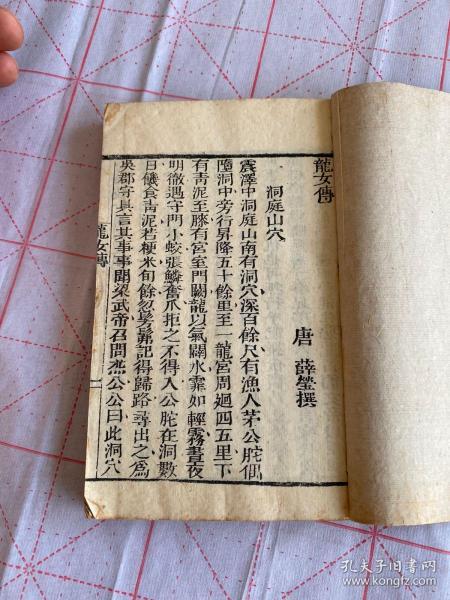 龍女傳
唐 薛瑩撰
洞庭山穴
震澤中洞庭山南有洞穴深百餘尺有漁人茅公𦨢偶
墮洞中旁行昇降五十餘里至一龍宮周迴四五里下
有青泥至膝有宮室門闕龍以氣闢水霏如輕霧晝夜
明徹遇守門小蛟張鱗奮爪拒之不得入公𦨢在洞數
日饑食青泥若粳米旬餘忽髣髴記得歸路尋出之爲
吳郡守具言其事事聞梁武帝召問杰公公曰此洞穴
龍女傳
一
孔夫子旧书网
www.kongfz.com